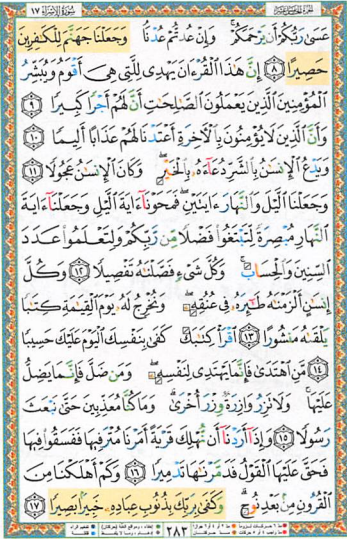 سُورَةُ الإِسْرَاءِ ١٧
الجُزْءُ الخَامِسَ عَشَرَ
عَسَىٰ رَبُّكُمْ أَن يَرْحَمَكُمْ ۚ وَإِنْ عُدتُّمْ عُدْنَا ۘ وَجَعَلْنَا جَهَنَّمَ لِلْكَـٰفِرِينَ
حَصِيرًا ٨ إِنَّ هَـٰذَا الْقُرْءَانَ يَهْدِى لِلَّتِى هِىَ أَقْوَمُ وَيُبَشِّرُ
الْمُؤْمِنِينَ الَّذِينَ يَعْمَلُونَ الصَّـٰلِحَـٰتِ أَنَّ لَهُمْ أَجْرًا كَبِيرًا ٩
وَأَنَّ الَّذِينَ لَا يُؤْمِنُونَ بِالْـَٔاخِرَةِ أَعْتَدْنَا لَهُمْ عَذَابًا أَلِيمًا ١٠
وَيَدْعُ الْإِنسَـٰنُ بِالشَّرِّ دُعَآءَهُۥ بِالْخَيْرِ ۖ وَكَانَ الْإِنسَـٰنُ عَجُولًا ١١
وَجَعَلْنَا الَّيْلَ وَالنَّهَارَ ءَايَتَيْنِ ۖ فَمَحَوْنَآ ءَايَةَ الَّيْلِ وَجَعَلْنَآ ءَايَةَ
النَّهَارِ مُبْصِرَةً لِّتَبْتَغُوا۟ فَضْلًا مِّن رَّبِّكُمْ وَلِتَعْلَمُوا۟ عَدَدَ
السِّنِينَ وَالْحِسَابَ ۚ وَكُلَّ شَىْءٍ فَصَّلْنَـٰهُ تَفْصِيلًا ١٢ وَكُلَّ
إِنسَـٰنٍ أَلْزَمْنَـٰهُ طَـٰٓئِرَهُۥ فِى عُنُقِهِۦ ۖ وَنُخْرِجُ لَهُۥ يَوْمَ الْقِيَـٰمَةِ كِتَـٰبًا
يَلْقَىٰهُ مَنشُورًا ١٣ اقْرَأْ كِتَـٰبَكَ كَفَىٰ بِنَفْسِكَ الْيَوْمَ عَلَيْكَ حَسِيبًا
١٤ مَّنِ اهْتَدَىٰ فَإِنَّمَا يَهْتَدِى لِنَفْسِهِۦ ۖ وَمَن ضَلَّ فَإِنَّمَا يَضِلُّ
عَلَيْهَا ۚ وَلَا تَزِرُ وَازِرَةٌ وِزْرَ أُخْرَىٰ ۗ وَمَا كُنَّا مُعَذِّبِينَ حَتَّىٰ نَبْعَثَ
رَسُولًا ١٥ وَإِذَآ أَرَدْنَآ أَن نُّهْلِكَ قَرْيَةً أَمَرْنَا مُتْرَفِيهَا فَفَسَقُوا۟ فِيهَا
فَحَقَّ عَلَيْهَا الْقَوْلُ فَدَمَّرْنَـٰهَا تَدْمِيرًا ١٦ وَكَمْ أَهْلَكْنَا مِنَ
الْقُرُونِ مِنۢ بَعْدِ نُوحٍ ۗ وَكَفَىٰ بِرَبِّكَ بِذُنُوبِ عِبَادِهِۦ خَبِيرًۢا بَصِيرًا ١٧
٢٨٣